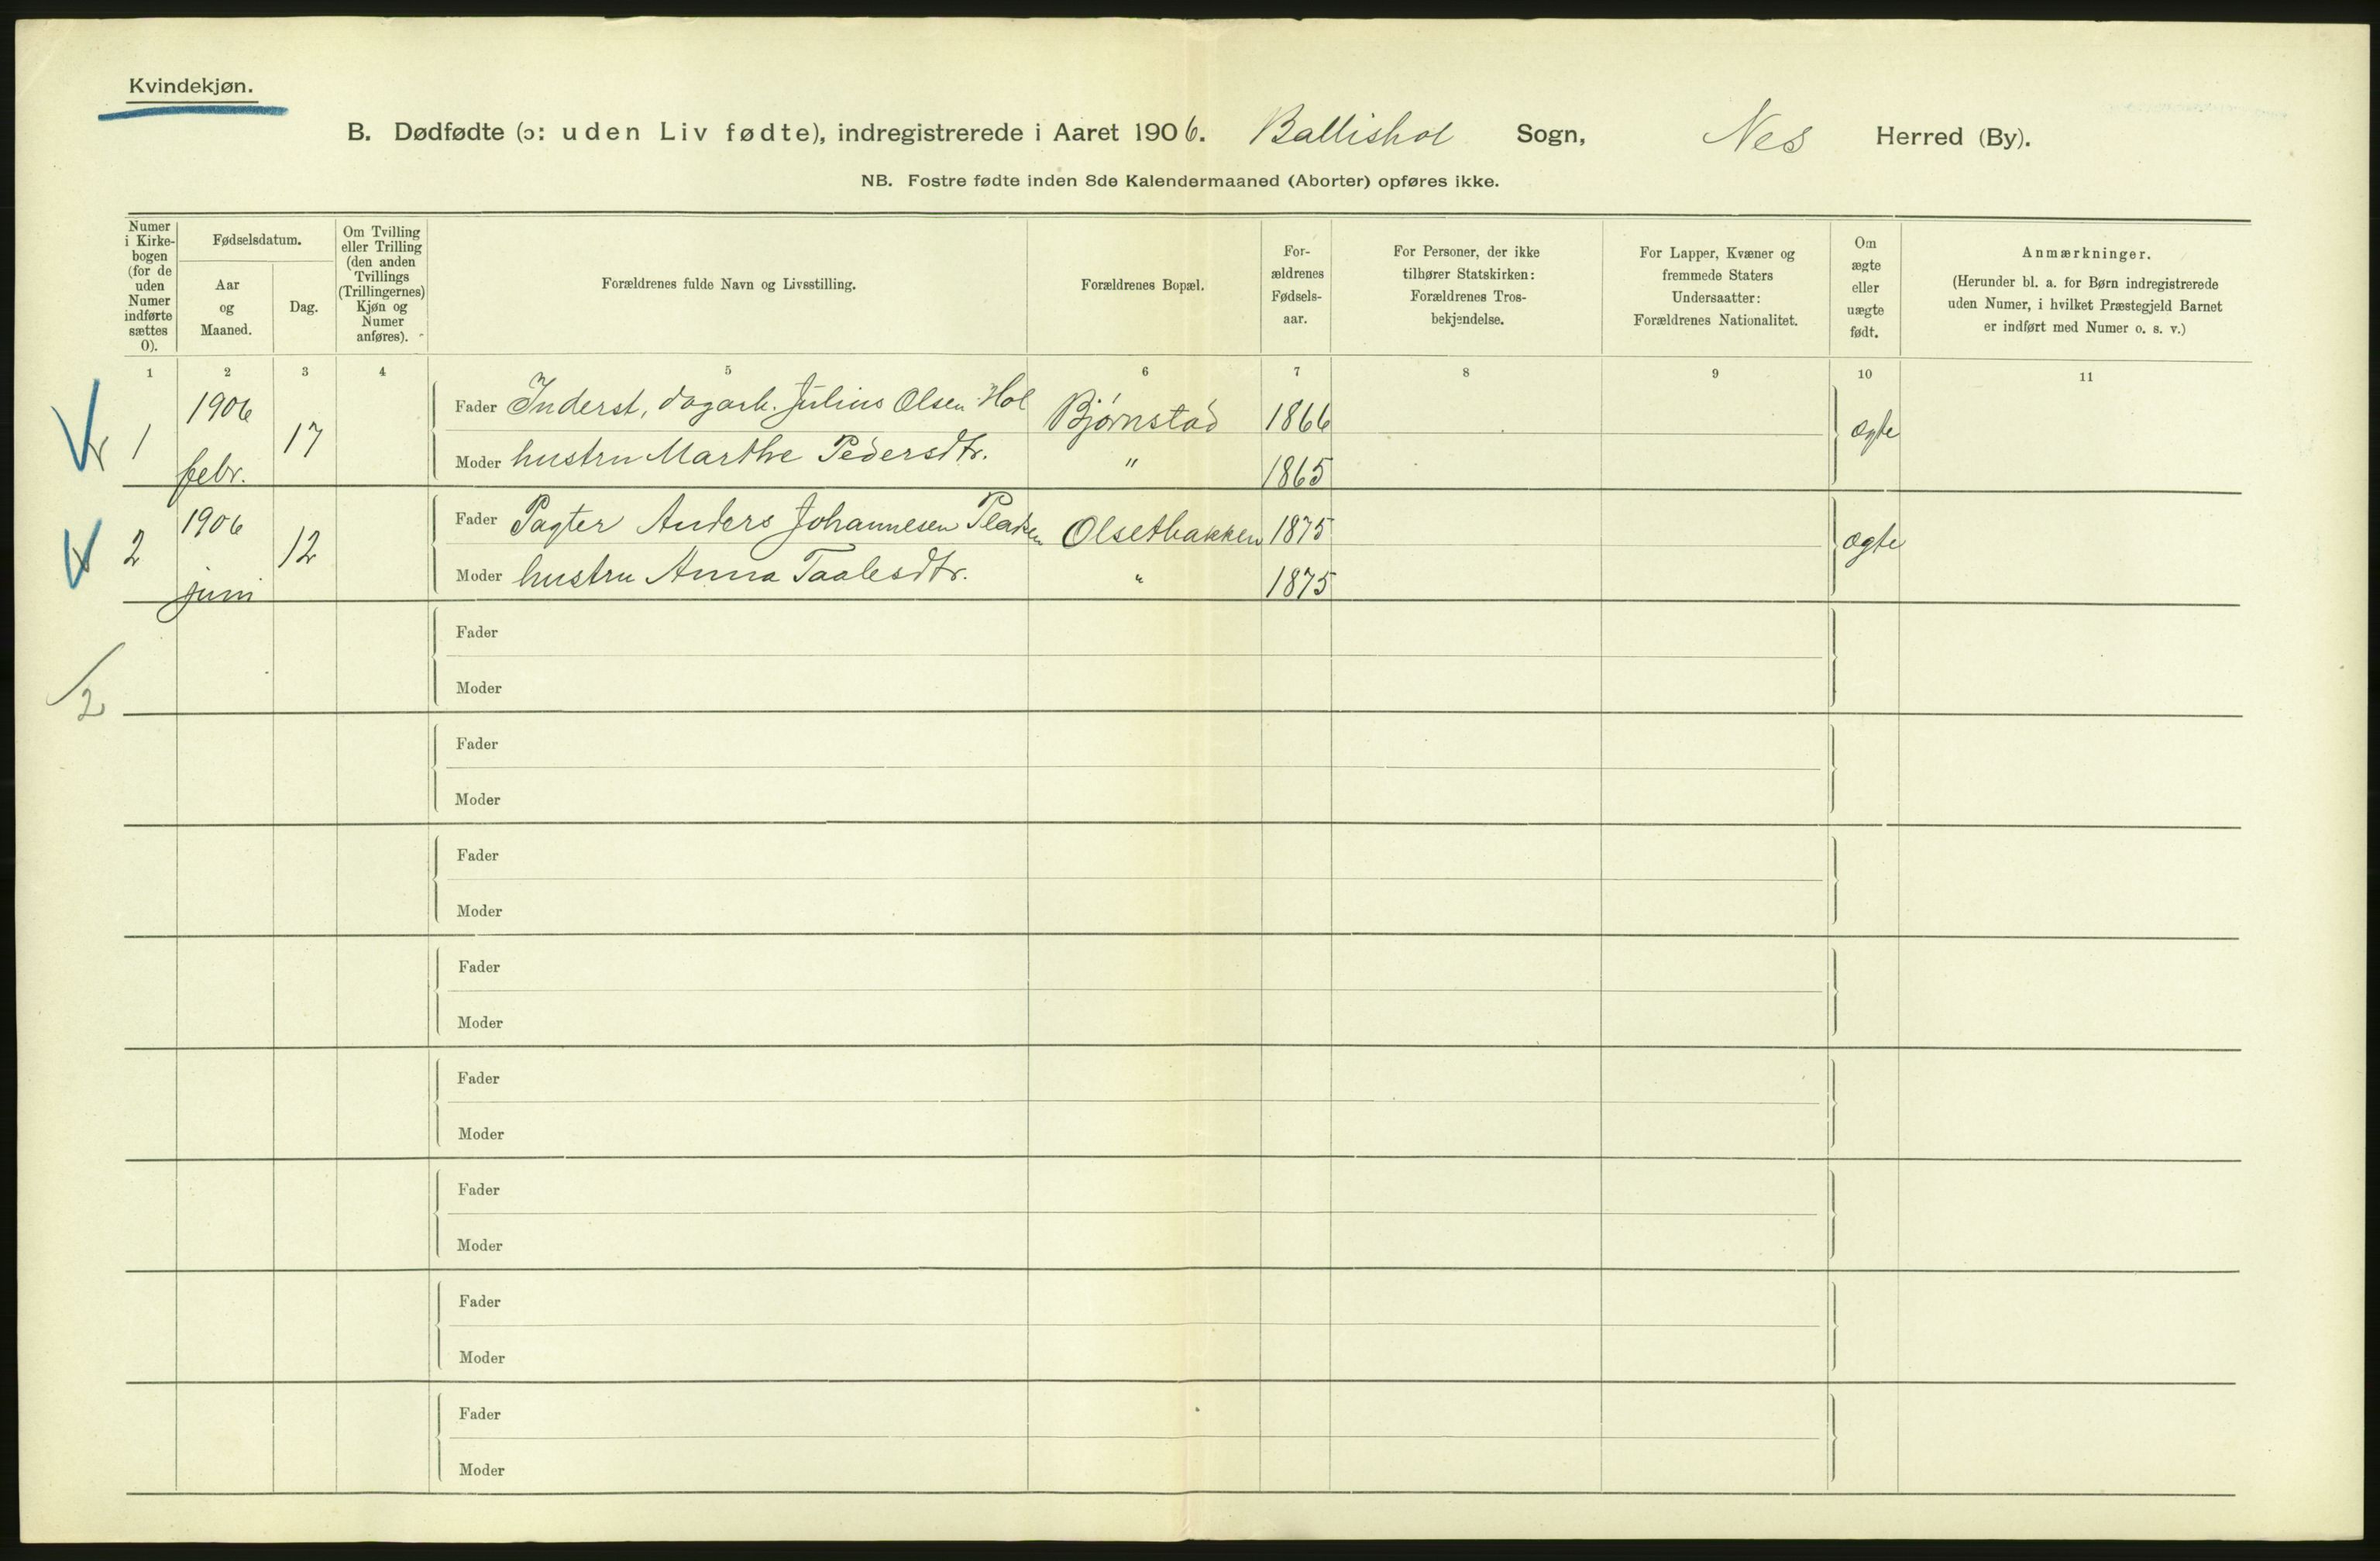 Kvindekjøn.
B. Dødfødte (ɔ: uden Liv fødte), indregistrerede i Aaret 1906. Ballishol Sogn, Nes Herred (By).
NB. Fostre fødte inden 8de Kalendermaaned (Aborter) opføres ikke.
Numer
i Kirke-
bogen
(for de
uden
Numer
indførte
sættes
0).
Fødselsdatum.
Aar
og
Maaned.
Dag.
Om Tvilling
eller Trilling
(den anden
Tvillings
(Trillingernes)
Kjøn og
Numer
anføres).
Forældrenes fulde Navn og Livsstilling.
Forældrenes Bopæl.
For-
ældrenes
Fødsels-
aar.
For Personer, der ikke
tilhører Statskirken:
Forældrenes Tros-
bekjendelse.
For Lapper, Kvæner og
fremmede Staters
Undersaatter:
Forældrenes Nationalitet.
Om
ægte
eller
uægte
født.
Anmærkninger.
(Herunder bl. a. for Børn indregistrerede
uden Numer, i hvilket Præstegjeld Barnet
er indført med Numer o. s. v.)
1 2 3 4 5 6 7 8 9 10 11
1 1906 febr. 17 Fader Inderst, dagarb. Julius Olsen Hol Bjørnstad 1866 ægte
Moder hustru Marthe Pedersdtr. " 1865
2 1906 juni 12 Fader Pagter Anders Johannesen Olsethakken 1875 ægte
Moder hustru Anna Taalesdtr. " 1875
Fader
Moder
2
Fader
Moder
Fader
Moder
Fader
Moder
Fader
Moder
Fader
Moder
Fader
Moder
Fader
Moder